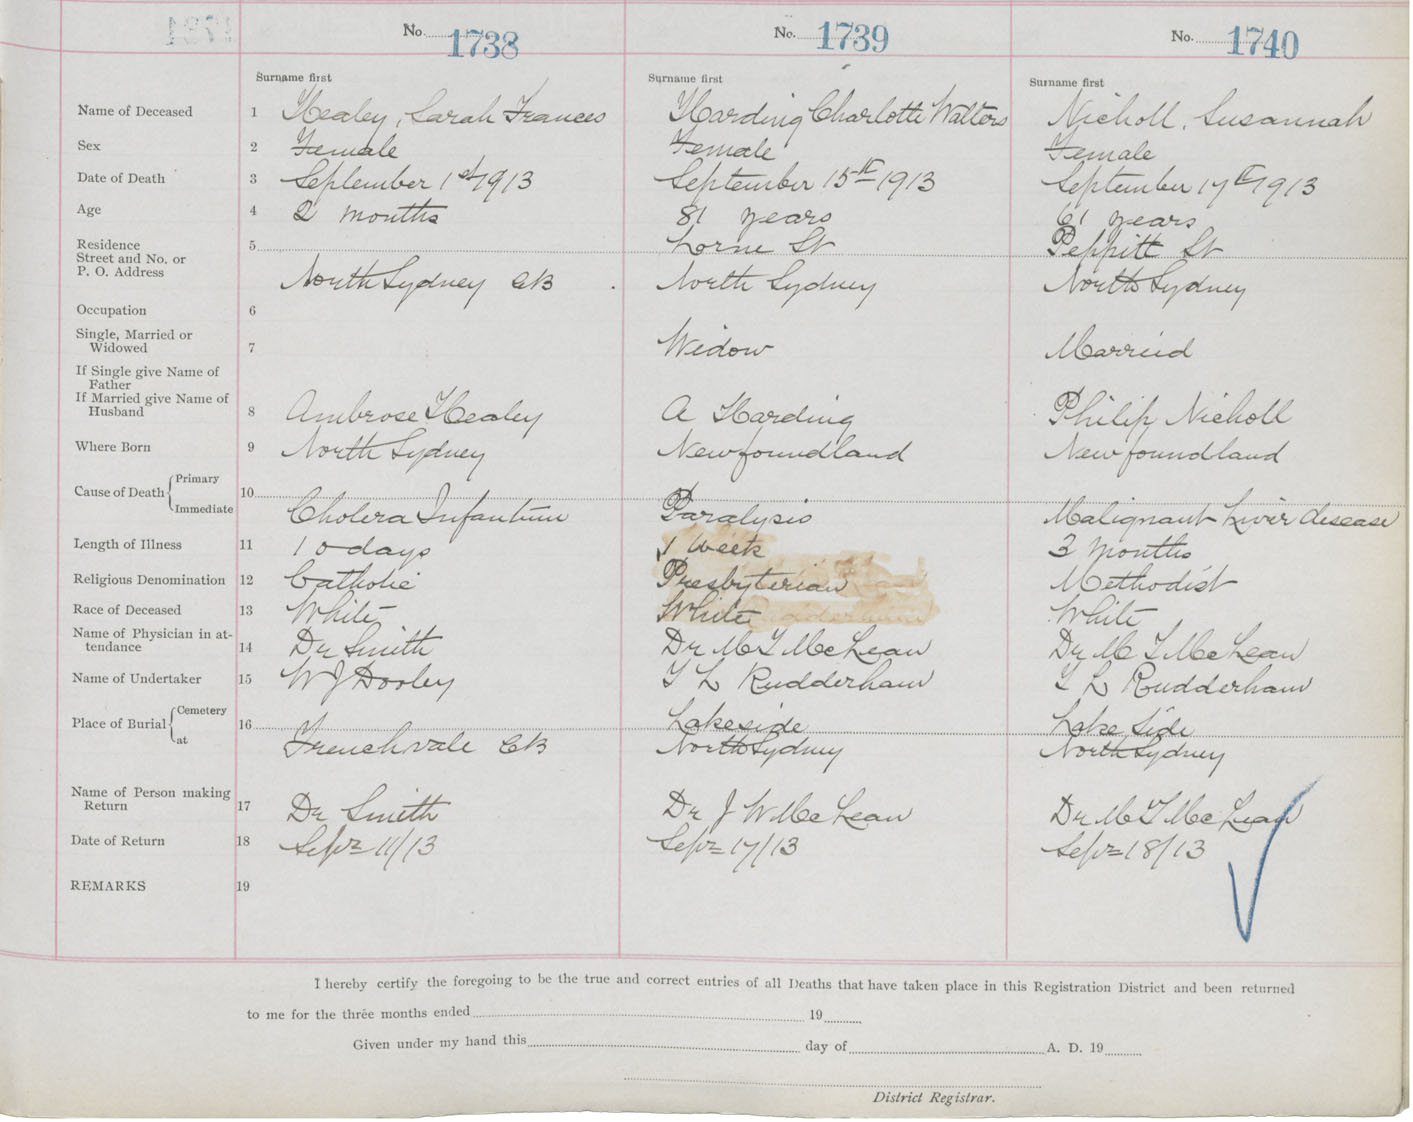 No. 1738 No. 1739 No. 1740
Surname first Surname first Surname first
Name of Deceased 1 Healey, Sarah Frances Harding Charlotte Walters Nicholl, Susannah
Sex 2 Female Female Female
Date of Death 3 September 1st 1913 September 15th 1913 September 17th 1913
Age 4 2 months 81 years 61 years
Residence 5 Lorne St Peppitt St
Street and No. or
P. O. Address North Sydney CB North Sydney North Sydney
Occupation 6
Single, Married or
Widowed 7 Widow Married
If Single give Name of
Father
If Married give Name of
Husband 8 Ambrose Healey A Harding Philip Nicholl
Where Born 9 North Sydney Newfoundland Newfoundland
Cause of Death Primary 10
Immediate Cholera Infantum Paralysis Malignant Liver disease
Length of Illness 11 10 days 1 week 3 months
Religious Denomination 12 Catholic Presbyterian Methodist
Race of Deceased 13 White White White
Name of Physician in at-
tendance 14 Dr Smith Dr M T McLean Dr M T McLean
Name of Undertaker 15 W J Dooley T L Rudderham T L Rudderham
Place of Burial Cemetery 16 Lakeside Lake Side
at Frenchvale CB North Sydney North Sydney
Name of Person making
Return 17 Dr Smith Dr J W McLean Dr M T McLean
Date of Return 18 Sept 11/13 Sept 17/13 Sept 18/13
REMARKS 19
I hereby certify the foregoing to be the true and correct entries of all Deaths that have taken place in this Registration District and been returned
to me for the three months ended 19
Given under my hand this day of A. D. 19
District Registrar.